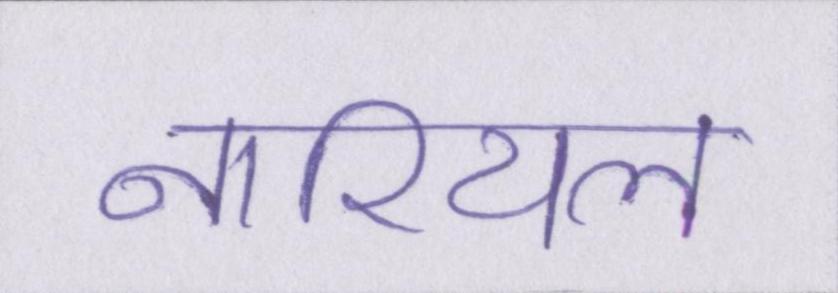 नारियल